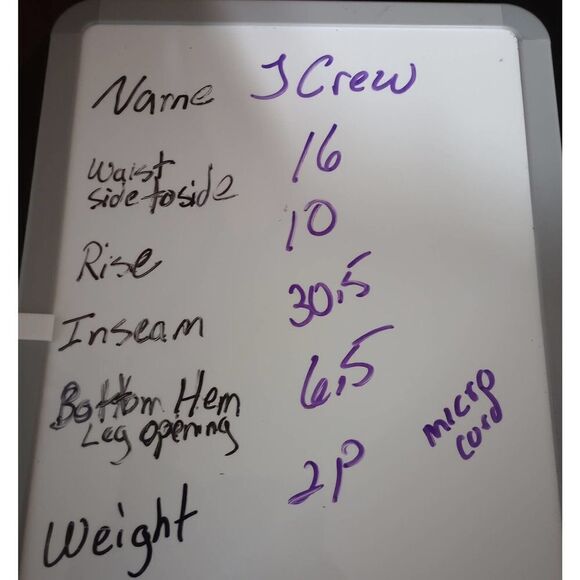 Name J Crew
Waist
side to side 16
Rise 10
Inseam 30.5
Bottom Hem 6.5
Leg opening
micro
cord
Weight 2P